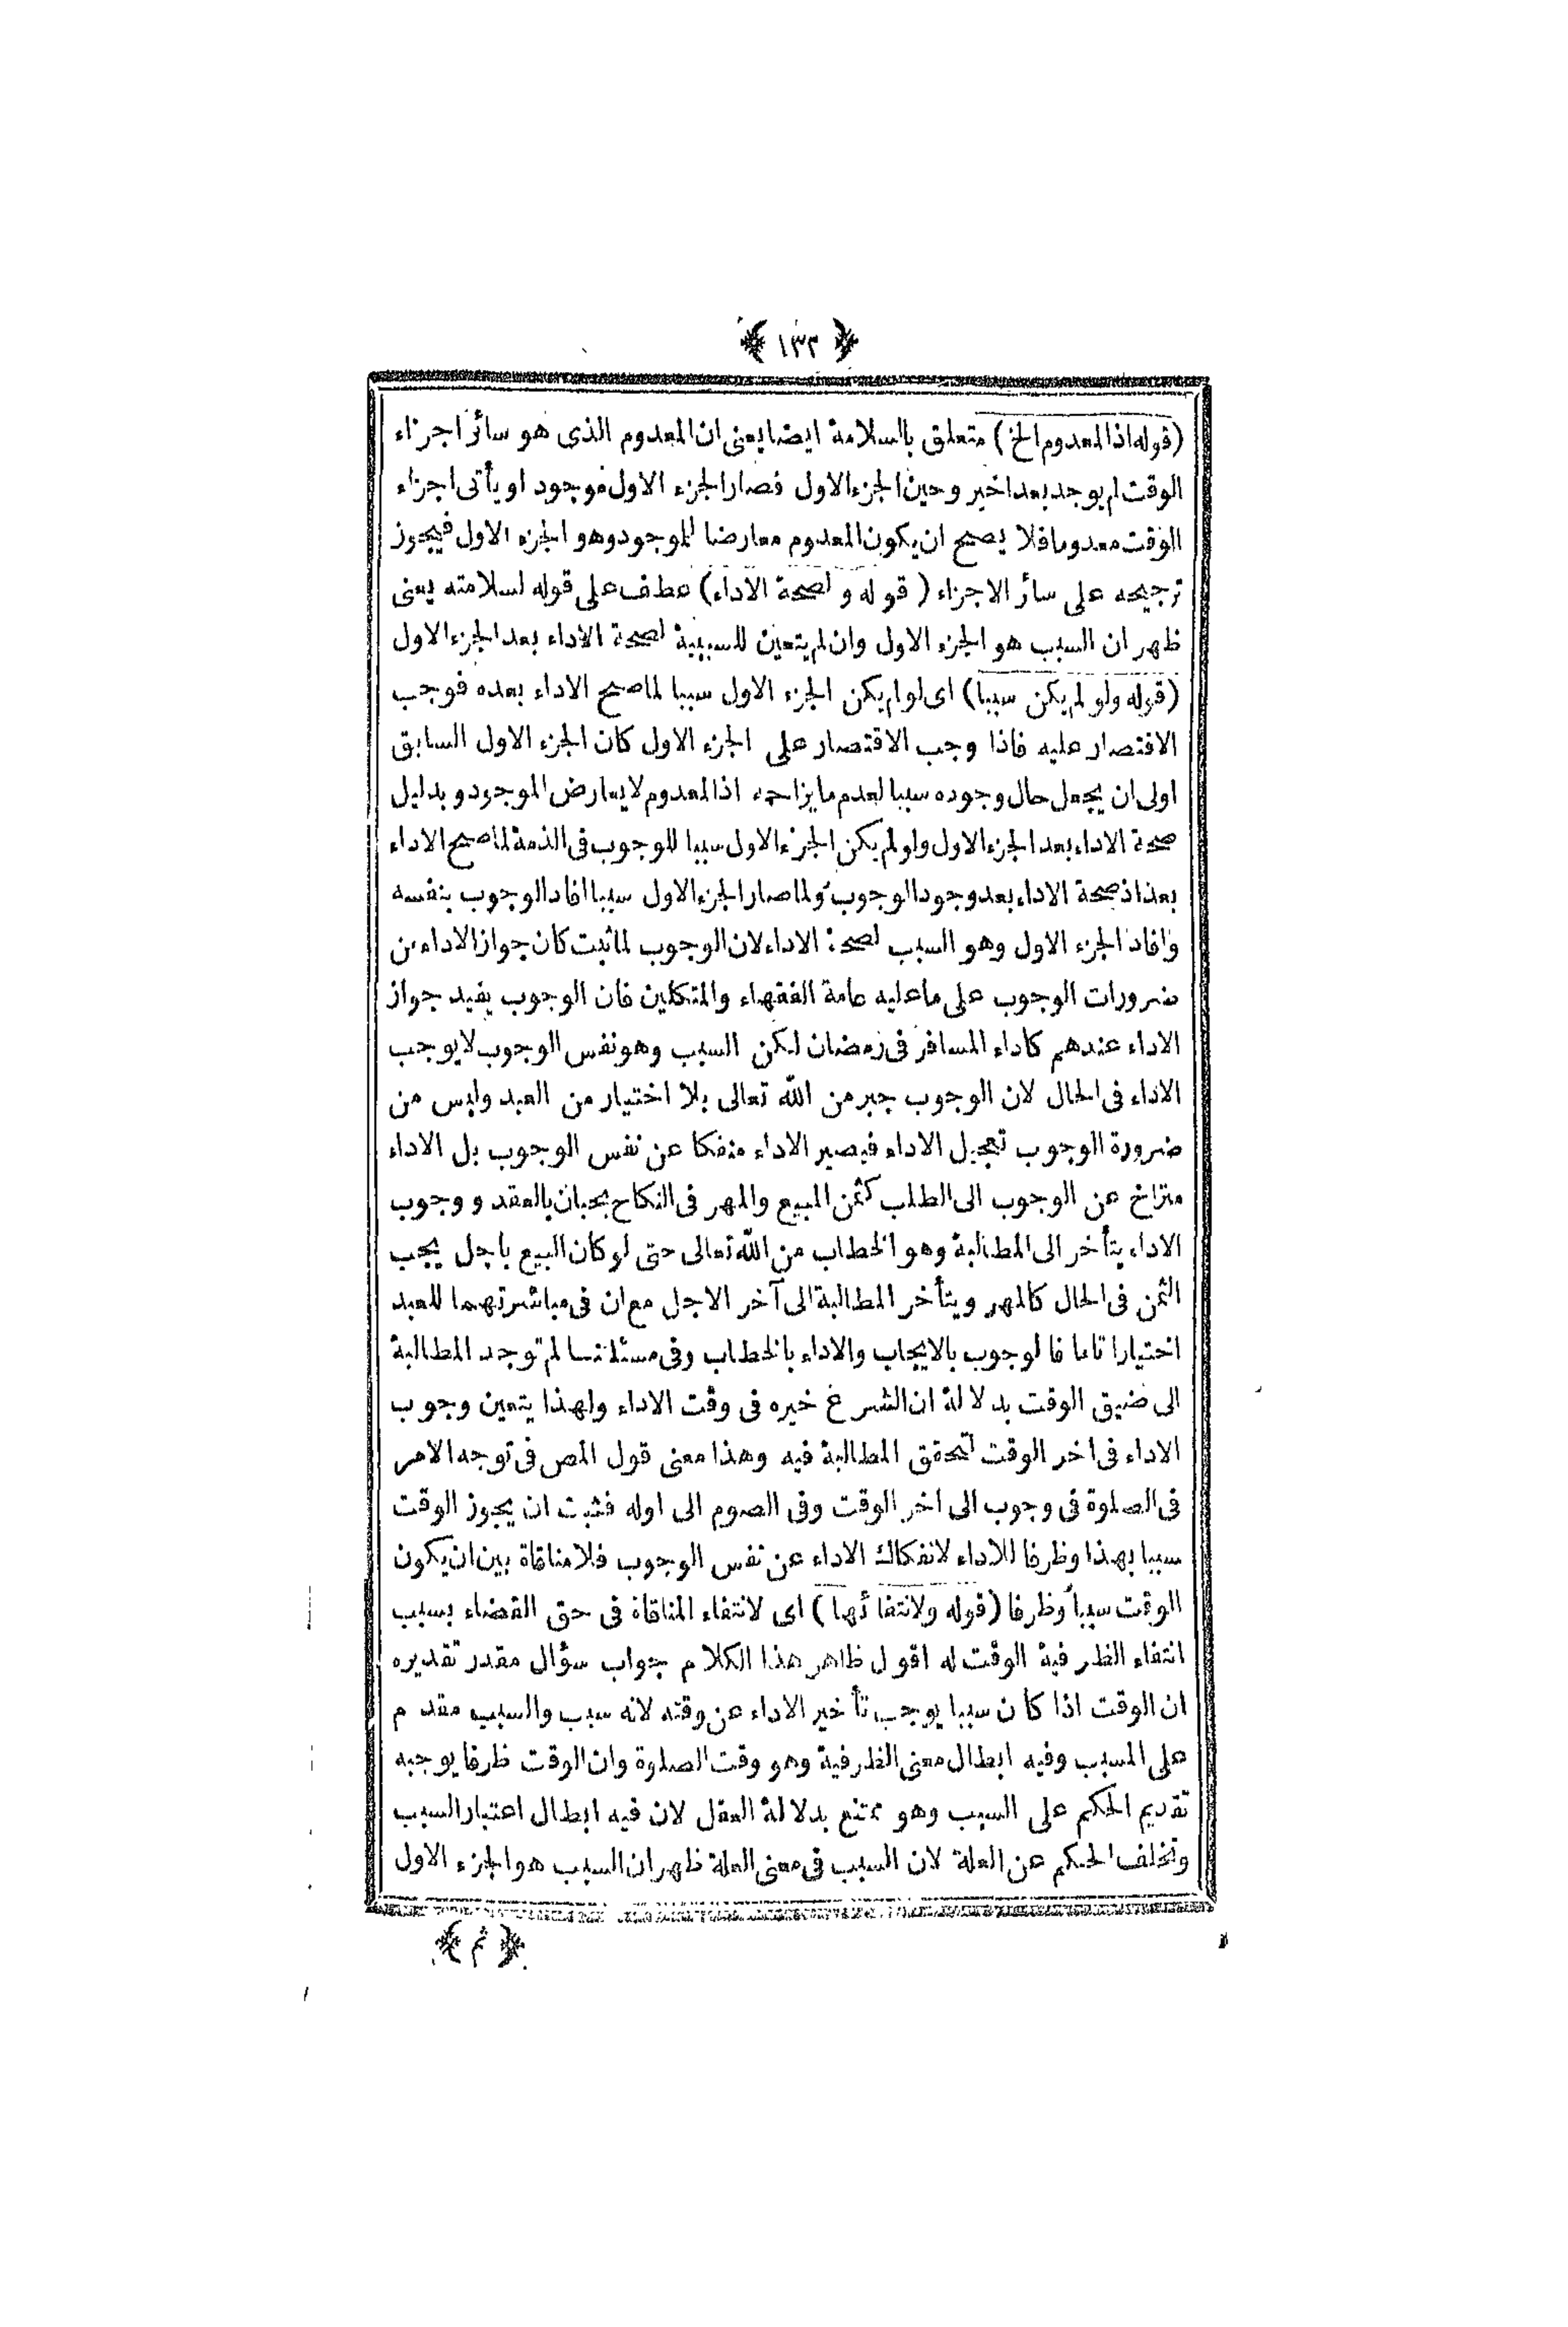 ﴿ ١٣٢ ﴾
(قوله اذ المعدوم الخ) متعلق بالسلامة ايضا يعنى ان المعدوم الذى هو سائر اجزاء
الوقت لم يوجد بعد اخير وحين الجزء الاول فصار الجزء الاول موجود او يأتى اجزاء
الوقت معدوما فلا يصح ان يكون المعدوم معارضا للموجود وهو الجزء الاول فيجوز
ترجيحه على سائر الاجزاء (قوله ولصحة الاداء) عطف على قوله لسلامته يعنى
ظهر ان السبب هو الجزء الاول وان لم يتعين للسببية لصحة الاداء بعد الجزء الاول
(قوله ولو لم يكن سببا) اى لو لم يكن الجزء الاول سببا لما صح الاداء بعده فوجب
الاقتصار عليه فاذا وجب الاقتصار على الجزء الاول كان الجزء الاول السابق
اولى ان يجعل حال وجوده سببا لعدم ما يزاحمه اذ المعدوم لا يعارض الموجود و بدليل
صحة الاداء بعد الجزء الاول ولو لم يكن الجزء الاول سببا للوجوب فى الذمة لما صح الاداء
بعد اذ صحة الاداء بعد وجود الوجوب ولما صار الجزء الاول سببا افاد الوجوب بنفسه
وافاد الجزء الاول وهو السبب لصحة الاداء لان الوجوب لما ثبت كان جواز الاداء من
ضرورات الوجوب على ما عليه عامة الفقهاء والمتكلمين فان الوجوب يفيد جواز
الاداء عندهم كاداء المسافر فى رمضان لكن السبب وهو نفس الوجوب لا يوجب
الاداء فى الحال لان الوجوب جبر من الله تعالى بلا اختيار من العبد وليس من
ضرورة الوجوب تعجيل الاداء فيصير الاداء منفكا عن نفس الوجوب بل الاداء
متراخ عن الوجوب الى الطلب كثمن المبيع والمهر فى النكاح يجبان بالعقد و وجوب
الاداء يتأخر الى المطالبة وهو الخطاب من الله تعالى حتى لو كان البيع باجل يجب
الثمن فى الحال كالمهر ويتأخر المطالبة الى آخر الاجل مع ان فى مباشرتهما للعبد
اختيارا تاما فا لوجوب بالايجاب والاداء بالخطاب وفى مسئلتنا لم توجد المطالبة
الى ضيق الوقت بدلالة ان الشرع خيره فى وقت الاداء ولهذا يتعين وجوب
الاداء فى اخر الوقت لتحقق المطالبة فيه وهذا معنى قول المص فى توجه الامر
فى الصلوة فى وجوب الى اخر الوقت وفى الصوم الى اوله فثبت ان يجوز الوقت
سببا بهذا وظرفا للاداء لانفكاك الاداء عن نفس الوجوب فلا منافاة بين ان يكون
الوقت سببا وظرفا (قوله ولانتفائها) اى لانتفاء المنافاة فى حق القضاء بسبب
انتفاء الظرفية الوقت له اقول ظاهر هذا الكلام جواب سؤال مقدر تقديره
ان الوقت اذا كان سببا يوجب تأخير الاداء عن وقته لانه سبب والسبب مقدم
على المسبب وفيه ابطال معنى الظرفية وهو وقت الصلوة وان الوقت ظرفا يوجبه
تقديم الحكم على السبب وهو ممتنع بدلالة العقل لان فيه ابطال اعتبار السبب
وتخلف الحكم عن العلة لان السبب فى معنى العلة ظهر ان السبب هو الجزء الاول
﴿ ثم ﴾